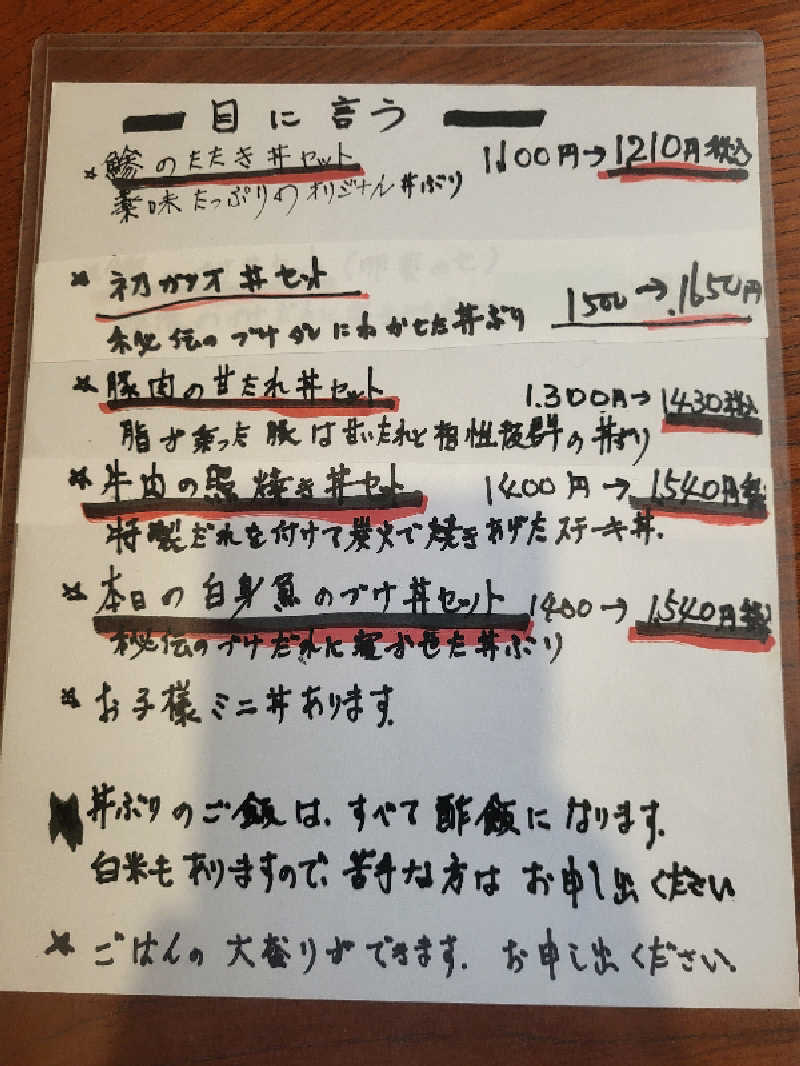 目に言う
*鯵のたたき丼セット 1100円→1210円税込
薬味たっぷりのオリジナル丼ぶり
*初カツオ丼セット 1500→1650円
秘伝のづけだれにわかせた丼ぶり
*豚肉の甘たれ丼セット 1.300円→1430税込
脂が乗った豚は甘いたれと相性抜群の丼ぶり
*牛肉の照焼き丼セット 1400円→1540円税
特製だれを付けて炭火で焼きあげたステーキ丼.
*本日の白身魚のづけ丼セット 1400→1540円税込
秘伝のづけだれに寝かせた丼ぶり
*お子様ミニ丼あります.
丼ぶりのご飯は、すべて酢飯になります.
白米もありますので、苦手な方はお申し出ください
*ごはんの大盛りができます. お申し出ください.